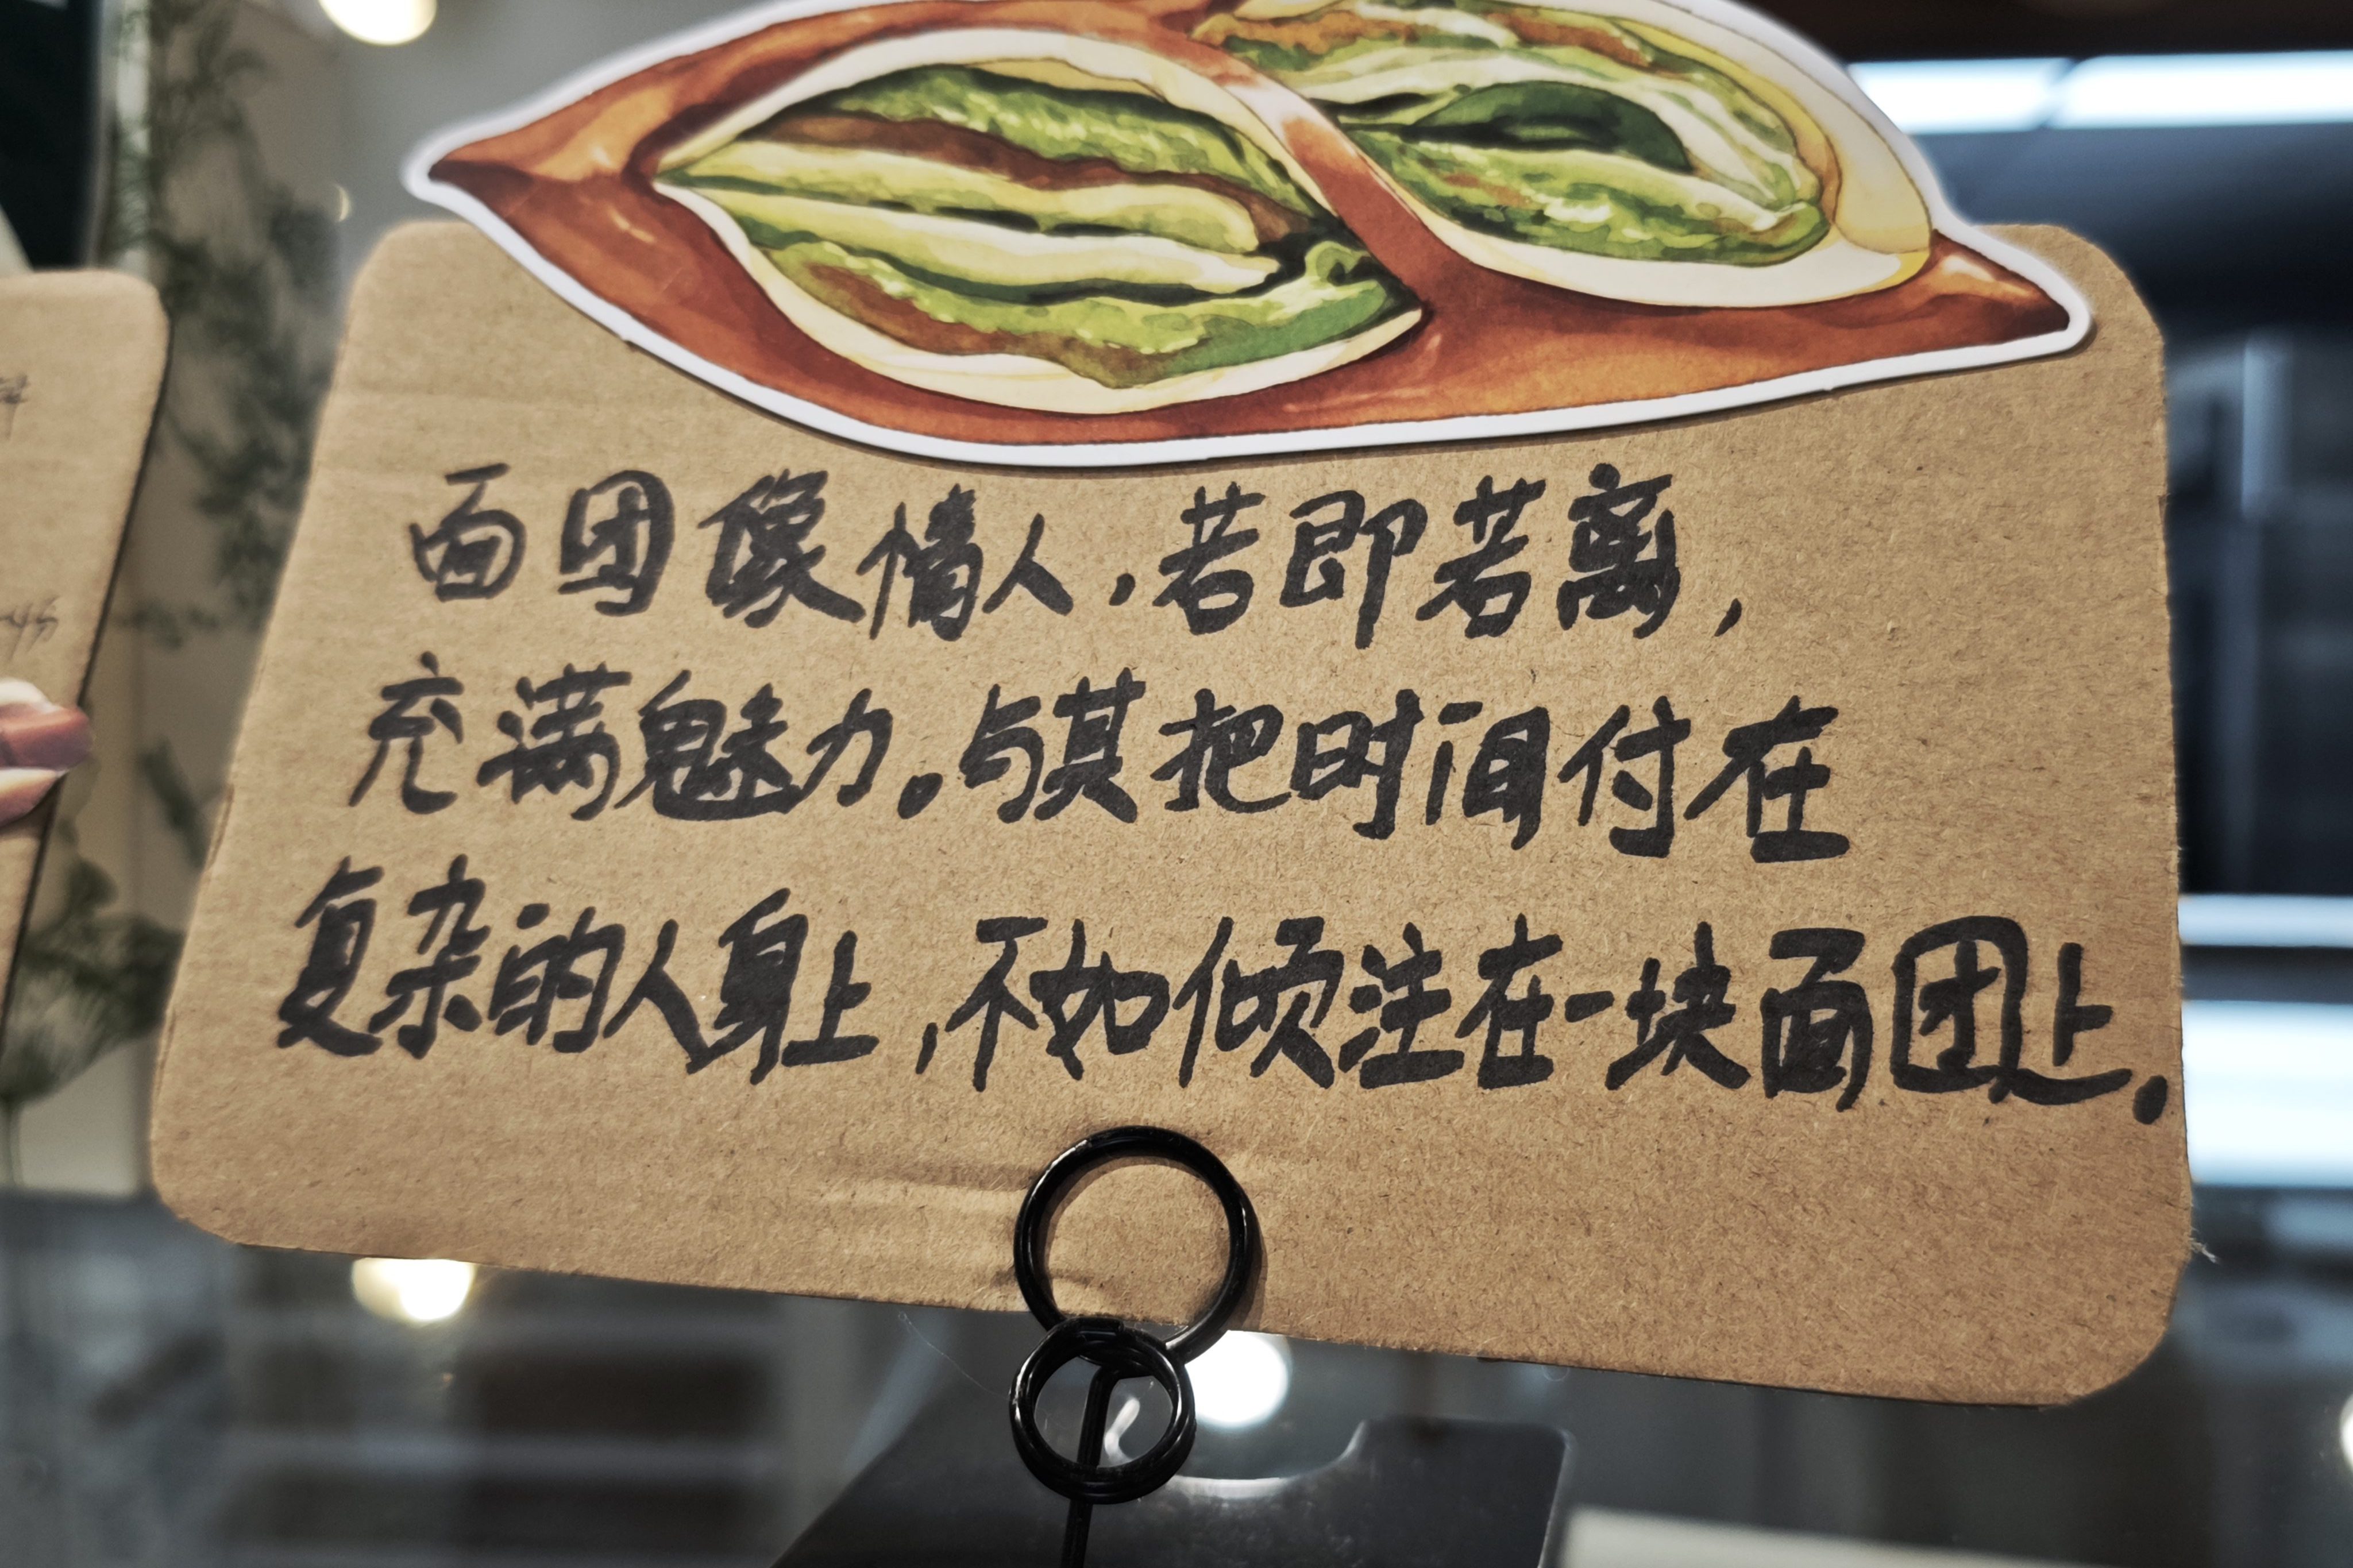 面团像情人，若即若离，
充满魅力。与其把时间付在
复杂的人身上，不如倾注在一块面团上。